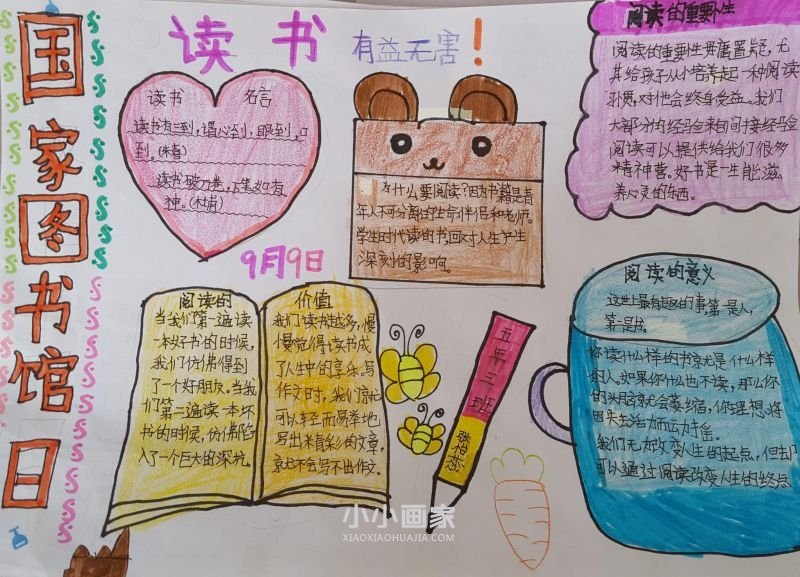 国家图书馆日
读书
有益无害!
读书 名言
读书有三到,谓心到,眼到,口
到。(朱熹)
读书破万卷,下笔如有
神。(杜甫)
9月9日
为什么要阅读?因为书籍是青
年人不可分离的生命伴侣和老师。
学生时代读的书,回对人生产生
深刻的影响。
阅读的重要生
阅读的重要生毋庸置疑,尤
其给孩子从小培养起一种阅读
习惯,对他会终身受益。我们
大部分的经验来自间接经验
阅读可以提供给我们很多
精神营。好书是一生能滋
养心灵的东西。
阅读的
当我们第一遍读
一本好书的时候,
我们仿佛得到
了一个好朋友。当我
们第二遍读一本坏
书的时候,仿佛陷
入了一个巨大的深坑。
价值
我们读书越多,慢
慢觉得读书成
了人生中的享乐。写
作文时,我们就
可以轻而易举地
写出精彩的文章,
就也不会写不出作文。
五年三班
阅读的意义
这世上最有趣的事,第一是人,
第一是书。
你读什么样的书就是什么样
的人,如果你什么也不读,那么你
的头脑就会萎缩,你理想将
因失去活力而动摇。
我们无力改变人生的起点,但去
可以通过阅读改变人生的终点
小小画家
XIAOXIAOHUAJIA.COM